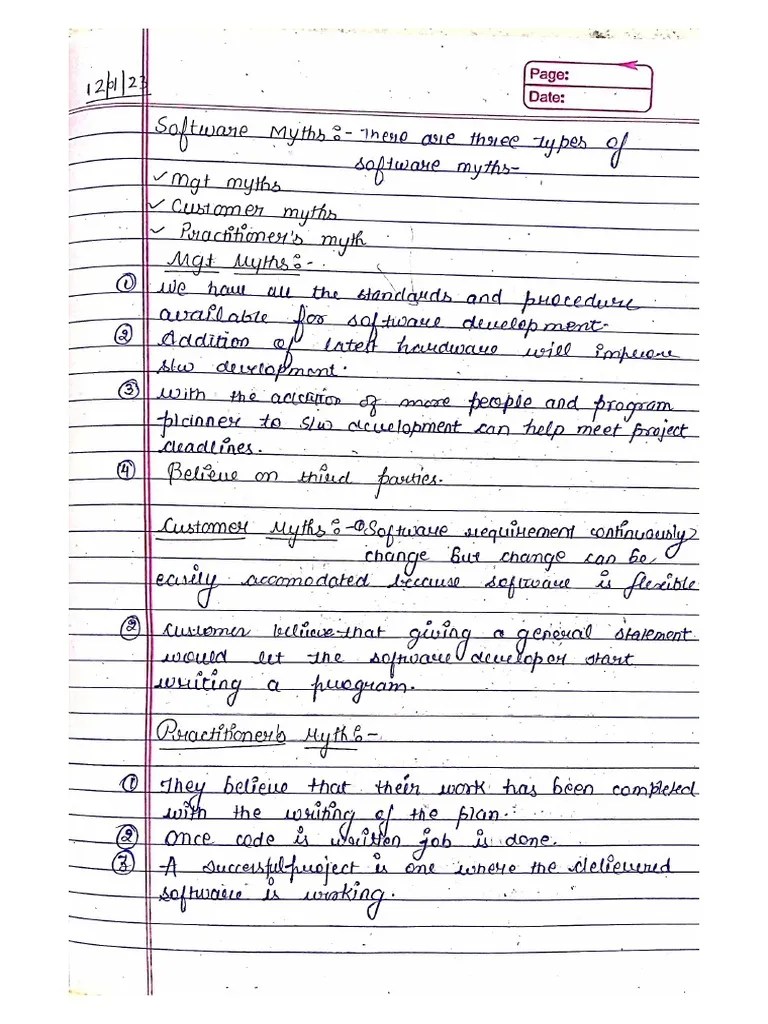 Page:
12/01/23
Date:
Software Myths:- There are three types of
software myths-
✓ Mgt myths
✓ Customer myths
✓ Practitioner's myth
Mgt Myths:-
① We have all the standards and procedure
available for software development.
② Addition of latest hardware will improve
s/w development.
③ with the addition of more people and program
planner to s/w development can help meet project
deadlines.
④ Believe on third parties.
Customer Myths:- ① Software requirement continuously
change but change can be
easily accomodated because software is flexible
② Customer believe that giving a general statement
would let the software developer start
writing a program.
Practitioner's Myth:-
① They believe that their work has been completed
with the writing of the plan.
② Once code is written job is done.
③ A successful project is one where the delievered
software is working.